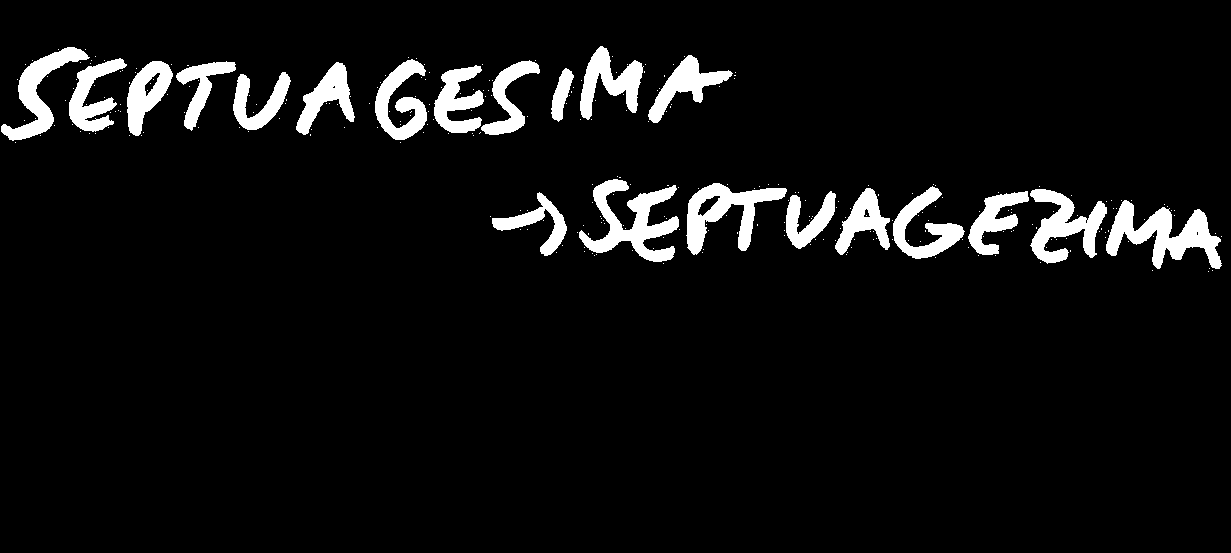 SEPTUAGESIMA
→SEPTUAGEZIMA